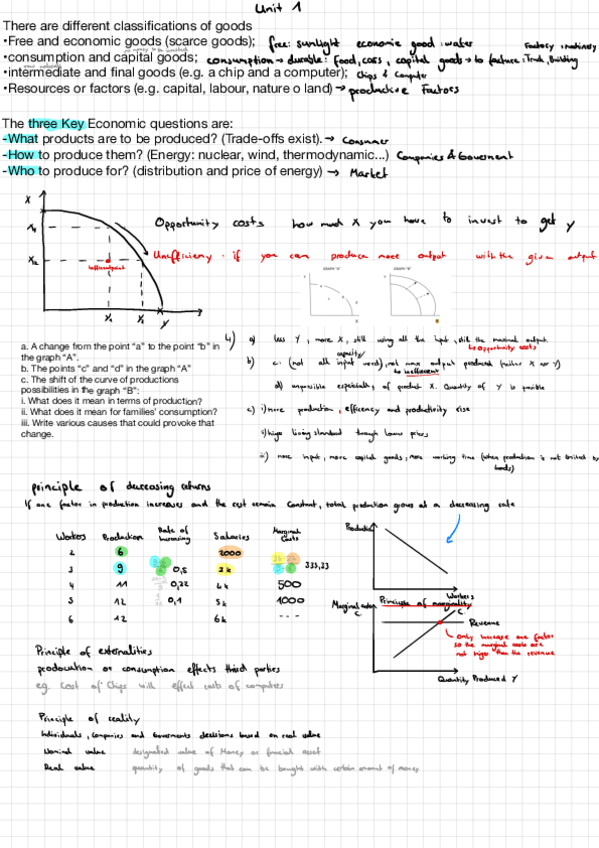 Unit 1
There are different classifications of goods
•Free and economic goods (scarce goods); free: sunlight economic good: water
•consumption and capital goods; consumption → durable: Food, cars, capital goods → to facture: Truck, Building
•intermediate and final goods (e.g. a chip and a computer); Chips & Computer
•Resources or factors (e.g. capital, labour, nature o land) → productive Factors
The three Key Economic questions are:
-What products are to be produced? (Trade-offs exist). → Consumer
-How to produce them? (Energy: nuclear, wind, thermodynamic...) Companies & Government
-Who to produce for? (distribution and price of energy) → Market
X
Opportunity costs how much X you have to invest to get y
Unefficieny: if you can produce more output with the given output
Y₁ Y₂ Y
a. A change from the point "a" to the point "b" in
the graph "A".
b. The points "c" and "d" in the graph "A"
c. The shift of the curve of productions
possibilities in the graph "B":
i. What does it mean in terms of production?
ii. What does it mean for families' consumption?
iii. Write various causes that could provoke that
change.
4) a) less Y, more X, still using all the input, still the maximal output
↳ Opportunity costs
b) c: (not all input used), not max output produced (neither X or Y)
capacity
↳ inefficient
d) unpossible especially, of product X. Quantity of Y is possible
c) i) more production, efficency and productivity rise
ii) higer living standard though lower prices
iii) more input, more capital goods, more working time (when production is not limited by
principle of decreasing returns
If one factor in production increases and the rest remain Constant, total production grows at a decreasing rate
Workers Production Rate of increasing Salaries Marginal Costs
2 6 2000
3 9 0,5 3k 333,33
4 11 0,22 4k 500
5 12 0,1 5k 1000
6 12 6k ---
Production
Workers
Principle of marginality
Marginal
C.
C.
Revenue
only increase one factor
so the marginal costs are
not higer than the revenue
Quantity Produced Y
Principle of externalities
prodocution or consumption effects third parties
eg. Cost of Chips will effect costs of computers
Principle of reality
Individuals, Companies and Goverments decisions based on real value
Nominal value designated value of Money or financial asset
Real value quantity of goods that can be bought with certain amount of money